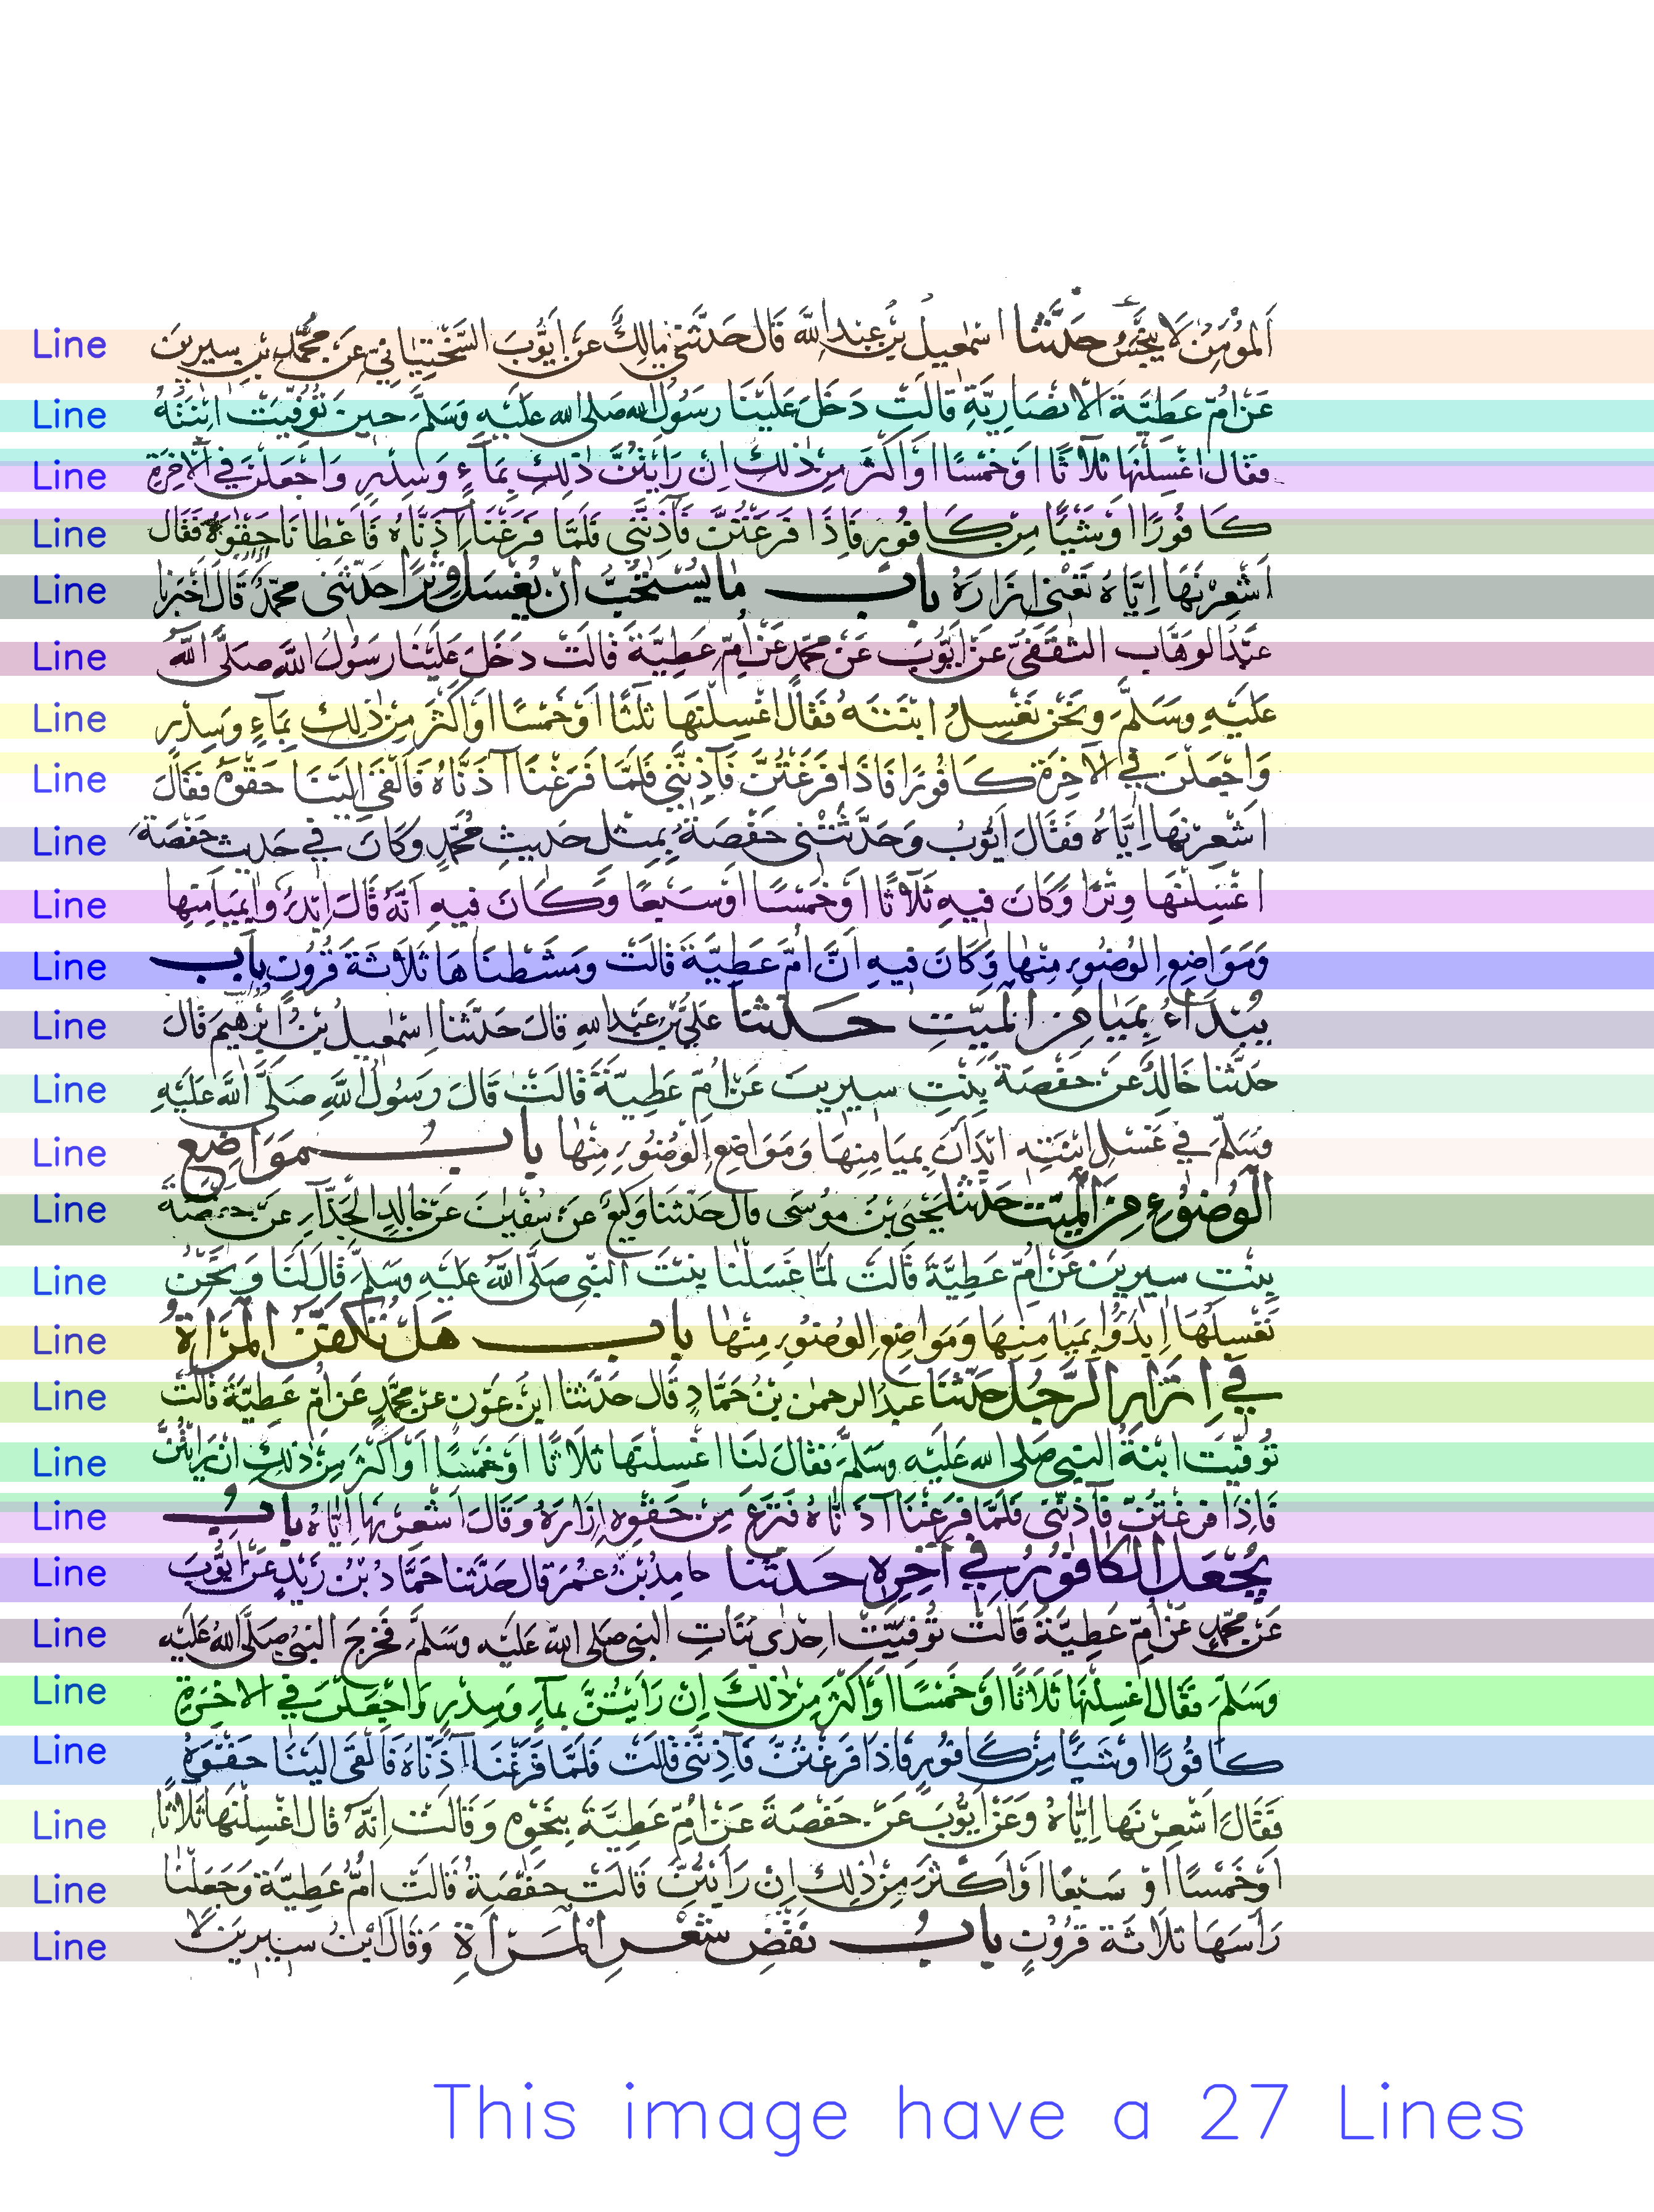 Line المؤمن لا ينجس حدثنا اسمعيل بن عبد الله قال حدثني مالك عن ايوب السختياني عن محمد بن سيرين
Line عن ام عطية الانصارية قالت دخل علينا رسول الله صلى الله عليه وسلم حين توفيت ابنته
Line فقال اغسلنها ثلاثا او خمسا او اكثر من ذلك ان رايتن ذلك بماء وسدر واجعلن في الآخرة
Line كافورا او شيئا من كافور فاذا فرغتن فآذنني فلما فرغنا آذناه فاعطانا حقوه فقال
Line اشعرنها اياه تعني ازاره باب ما يستحب ان يغسل وترا حدثني محمد قال اخبرنا
Line عبد الوهاب الثقفي عن ايوب عن محمد عن ام عطية قالت دخل علينا رسول الله صلى الله
Line عليه وسلم ونحن نغسل ابنته فقال اغسلنها ثلثا او خمسا او اكثر من ذلك بماء وسدر
Line واجعلن في الآخرة كافورا فاذا فرغتن فآذنني فلما فرغنا آذناه فالقى الينا حقوه فقال
Line اشعرنها اياه فقال ايوب وحدثتني حفصة بمثل حديث محمد وكان في حديث حفصة
Line اغسلنها وترا وكان فيه ثلاثا او خمسا او سبعا وكان فيه انه قال ابدؤا بميامنها
Line ومواضع الوضوء منها وكان فيه ان ام عطية قالت ومشطناها ثلاثة قرون باب
Line يبداء بميامن الميت حدثنا علي بن عبد الله قال حدثنا اسمعيل بن ابرهيم قال
Line حدثنا خالد عن حفصة بنت سيرين عن ام عطية قالت قال رسول الله صلى الله عليه
Line وسلم في غسل ابنته ابدان بميامنها ومواضع الوضوء منها باب مواضع
Line الوضوء من الميت حدثنا يحيى بن موسى قال حدثنا وكيع عن سفين عن خالد الحذاء عن حفصة
Line بنت سيرين عن ام عطية قالت لما غسلنا بنت النبي صلى الله عليه وسلم قال لنا ونحن
Line نغسلها ابدؤا بميامنها ومواضع الوضوء منها باب هل تكفن المرأة
Line في ازار الرجل حدثنا عبد الرحمن بن حماد قال حدثنا ابن عون عن محمد عن ام عطية قالت
Line توفيت ابنة النبي صلى الله عليه وسلم فقال لنا اغسلنها ثلاثا او خمسا او اكثر من ذلك ان رايتن
Line فاذا فرغتن فآذنني فلما فرغنا آذناه فنزع من حقوه ازاره وقال اشعرنها اياه باب
Line يجعل الكافور في آخره حدثنا حامد بن عمر قال حدثنا حماد بن زيد عن ايوب
Line عن محمد عن ام عطية قالت توفيت احدى بنات النبي صلى الله عليه وسلم فخرج النبي صلى الله عليه
Line وسلم فقال اغسلنها ثلاثا او خمسا او اكثر من ذلك ان رايتن بماء وسدر واجعلن في الاخرة
Line كافورا او شيئا من كافور فاذا فرغتن فآذنني قالت فلما فرغنا آذناه فالقى الينا حقوه
Line فقال اشعرنها اياه وعن ايوب عن حفصة عن ام عطية بنحوه وقالت انه قال اغسلنها ثلاثا
Line او خمسا او سبعا او اكثر من ذلك ان رايتن قالت حفصة قالت ام عطية وجعلنا
Line راسها ثلاثة قرون باب نقض شعر المرأة وقال ابن سيرين لا
This image have a 27 Lines